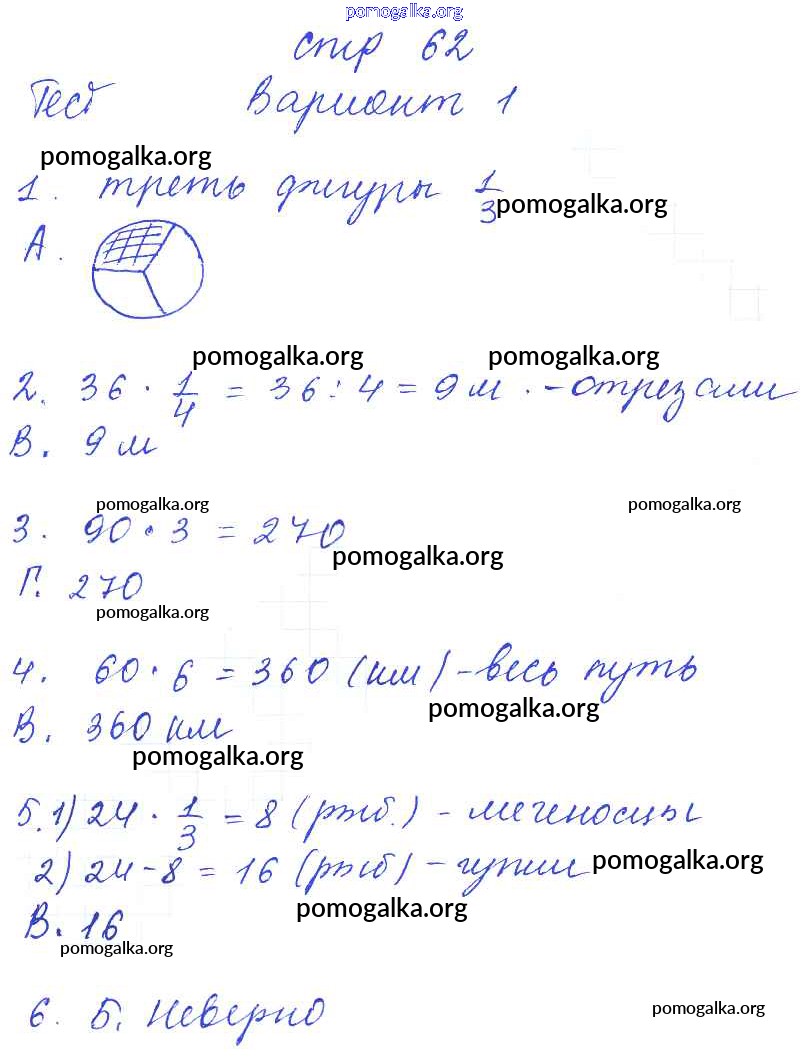 pomogalka.org
стр 62
Тест Вариант 1
pomogalka.org
1. треть фигуры 1/3 pomogalka.org
А.
pomogalka.org pomogalka.org
2. 36 · 1/4 = 36 : 4 = 9 м. - отрезали
В. 9 м
pomogalka.org pomogalka.org
3. 90 · 3 = 270
pomogalka.org
Г. 270
pomogalka.org
4. 60 · 6 = 360 (км) - весь путь
pomogalka.org
В. 360 км
pomogalka.org
5. 1) 24 · 1/3 = 8 (рыб.) - меченосцы
2) 24 - 8 = 16 (рыб) - гупии pomogalka.org
В. 16 pomogalka.org
pomogalka.org
6. Б. Неверно pomogalka.org